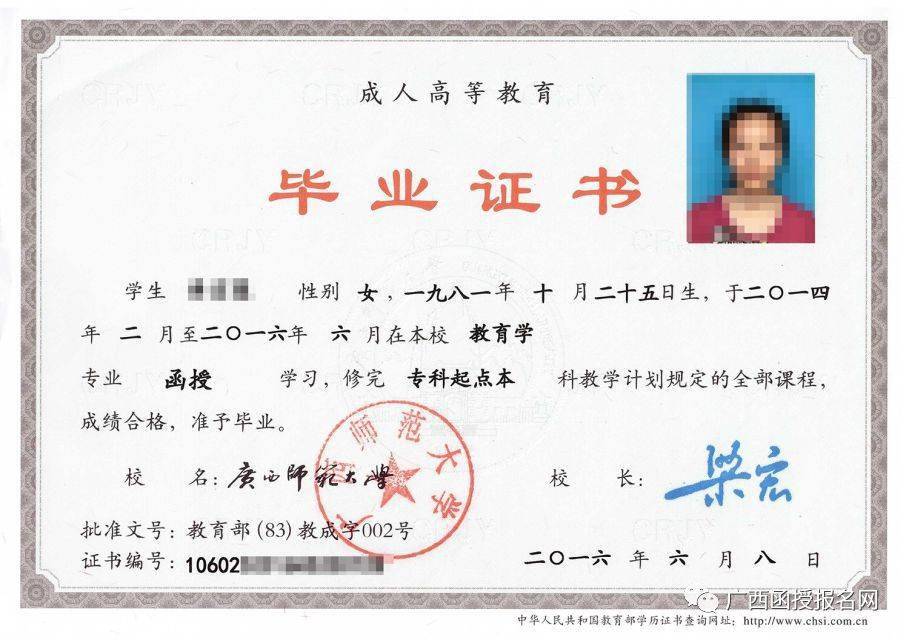 成人高等教育
毕业证书
学生 性别 女，一九八一年 十 月二十五日生，于二〇一四
年 二 月至二〇一六年 六 月在本校 教育学
专业 函授 学习，修完 专科起点本 科教学计划规定的全部课程，
成绩合格，准予毕业。
校 名：廣西師範大學
校 长：梁宏
广西师范大学
批准文号：教育部(83)教成字002号
证书编号：10602
二〇一六 年 六 月 八 日
广西函授报名网
中华人民共和国教育部学历证书查询网址：http://www.chsi.com.cn